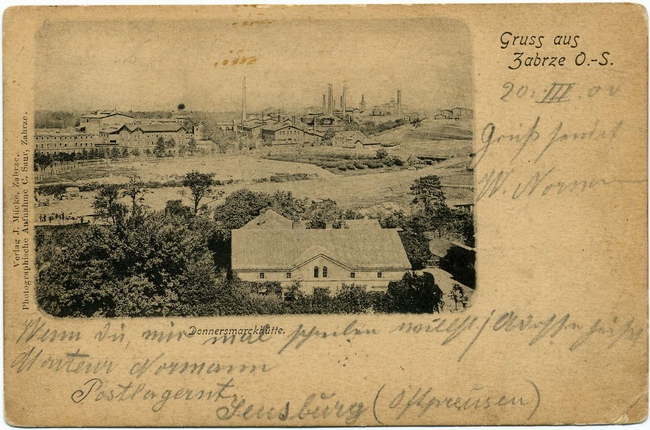 Gruss aus
Zabrze O.-S.
20. III. 00
Gruß sendet
W. Normann
Verlag J. Mücke, Zabrze.
Photographische Aufnahme C. Saur, Zabrze.
Donnersmarckhütte.
Wenn du, mir mal schreiben willst
Monteur Normann
Postlagernt
Sensburg (Ostpreusen)